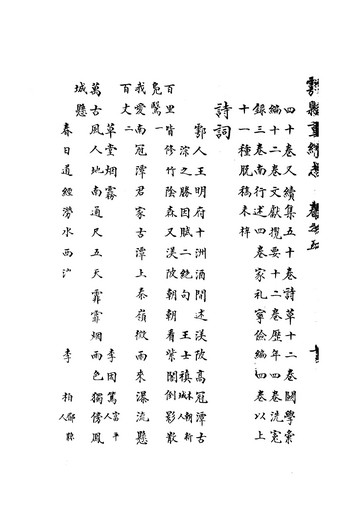 四十卷又續集五十卷詩草十二卷關學彙
編十二卷文獻攬要十二卷歷年四卷流寇
錄三卷南行述四卷家礼寧儉編四卷以上
十一種脫稿未梓
詩詞
鄠人王明府十洲酒間述渼陂高冠潭古
淙之勝因賦二絕句 王士禎 朝新城人
百里皆修竹陰森又渼陂朝朝看紫閣倒影散
鳧鷖一
我愛南冠潭君家古潭上秦嶺微雨來瀑流懸
百丈二
草堂烟霧 李因篤 富平人
萬古風人地南通尺五天霏霏烟雨色獨傍鳳
城懸
春日道經澇水西 李柏 郿縣人